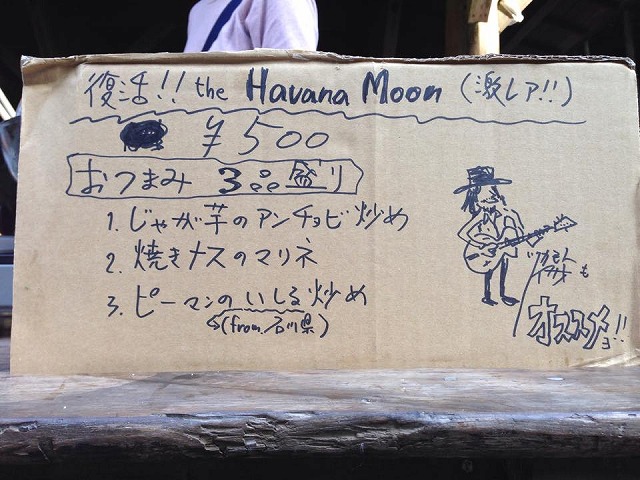 復活!! the Havana Moon (激レア!!)
¥500
おつまみ 3品盛り
1. じゃが芋のアンチョビ炒め
2. 焼きナスのマリネ
3. ピーマンのいしる炒め
(from 石川県)
も
オススメョ!!